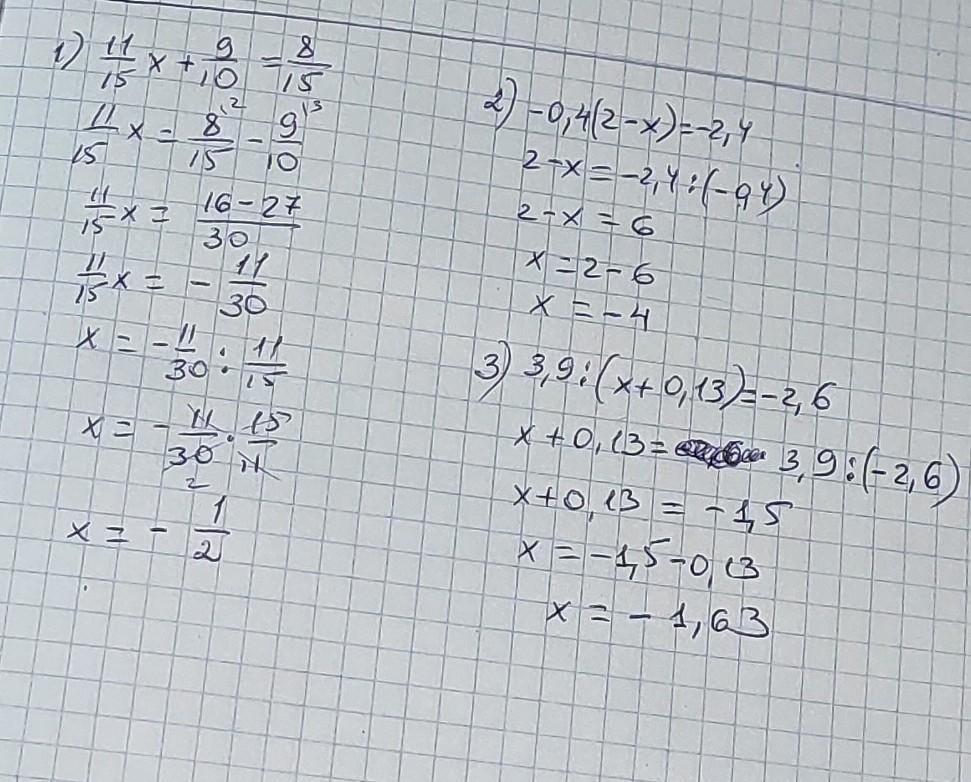 1) 11/15 x + 9/10 = 8/15
11/15 x = 8/15 \2 - 9/10 \3
11/15 x = (16-27)/30
11/15 x = - 11/30
x = - 11/30 : 11/15
x = - 11/30 2 · 15/11
x = - 1/2
2) -0,4(2-x)=-2,4
2-x=-2,4:(-0,4)
2-x=6
x=2-6
x=-4
3) 3,9:(x+0,13)=-2,6
x+0,13= 3,9:(-2,6)
x+0,13=-1,5
x=-1,5-0,13
x=-1,63